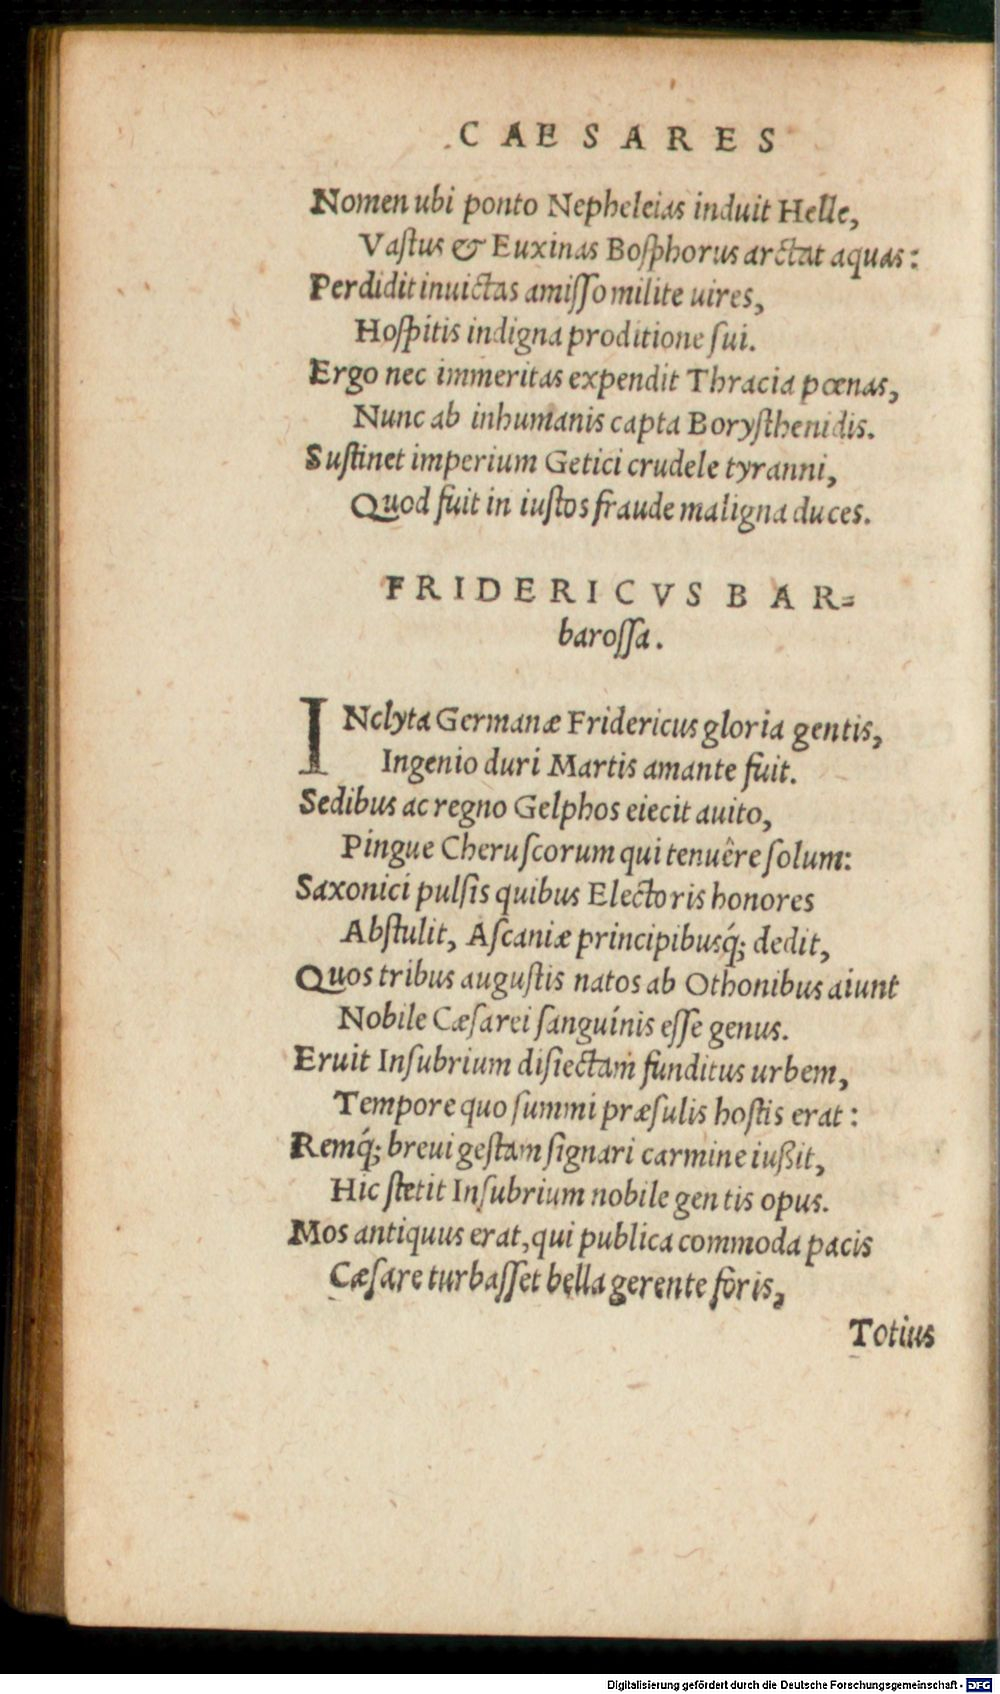 CAESARES
Nomen ubi ponto Nepheleias induit Helle,
Vaſtus & Euxinas Boſphorus arctat aquas:
Perdidit inuictas amiſſo milite uires,
Hoſpitis indigna proditione ſui.
Ergo nec immeritas expendit Thracia pœnas,
Nunc ab inhumanis capta Boryſthenidis.
Suſtinet imperium Getici crudele tyranni,
Quod fuit in iuſtos fraude maligna duces.
FRIDERICVS BAR=
baroſſa.
INclyta Germanæ Fridericus gloria gentis,
Ingenio duri Martis amante fuit.
Sedibus ac regno Gelphos eiecit auito,
Pingue Cheruſcorum qui tenuêre ſolum:
Saxonici pulſis quibus Electoris honores
Abſtulit, Aſcaniæ principibusq́; dedit,
Quos tribus auguſtis natos ab Othonibus aiunt
Nobile Cæſarei ſanguinis eſſe genus.
Eruit Inſubrium diſiectam funditus urbem,
Tempore quo ſummi præſulis hoſtis erat:
Remq́; breui geſtam ſignari carmine iußit,
Hic ſtetit Inſubrium nobile gentis opus.
Mos antiquus erat, qui publica commoda pacis
Cæſare turbaſſet bella gerente foris,
Totius
Digitalisierung gefördert durch die Deutsche Forschungsgemeinschaft - DFG